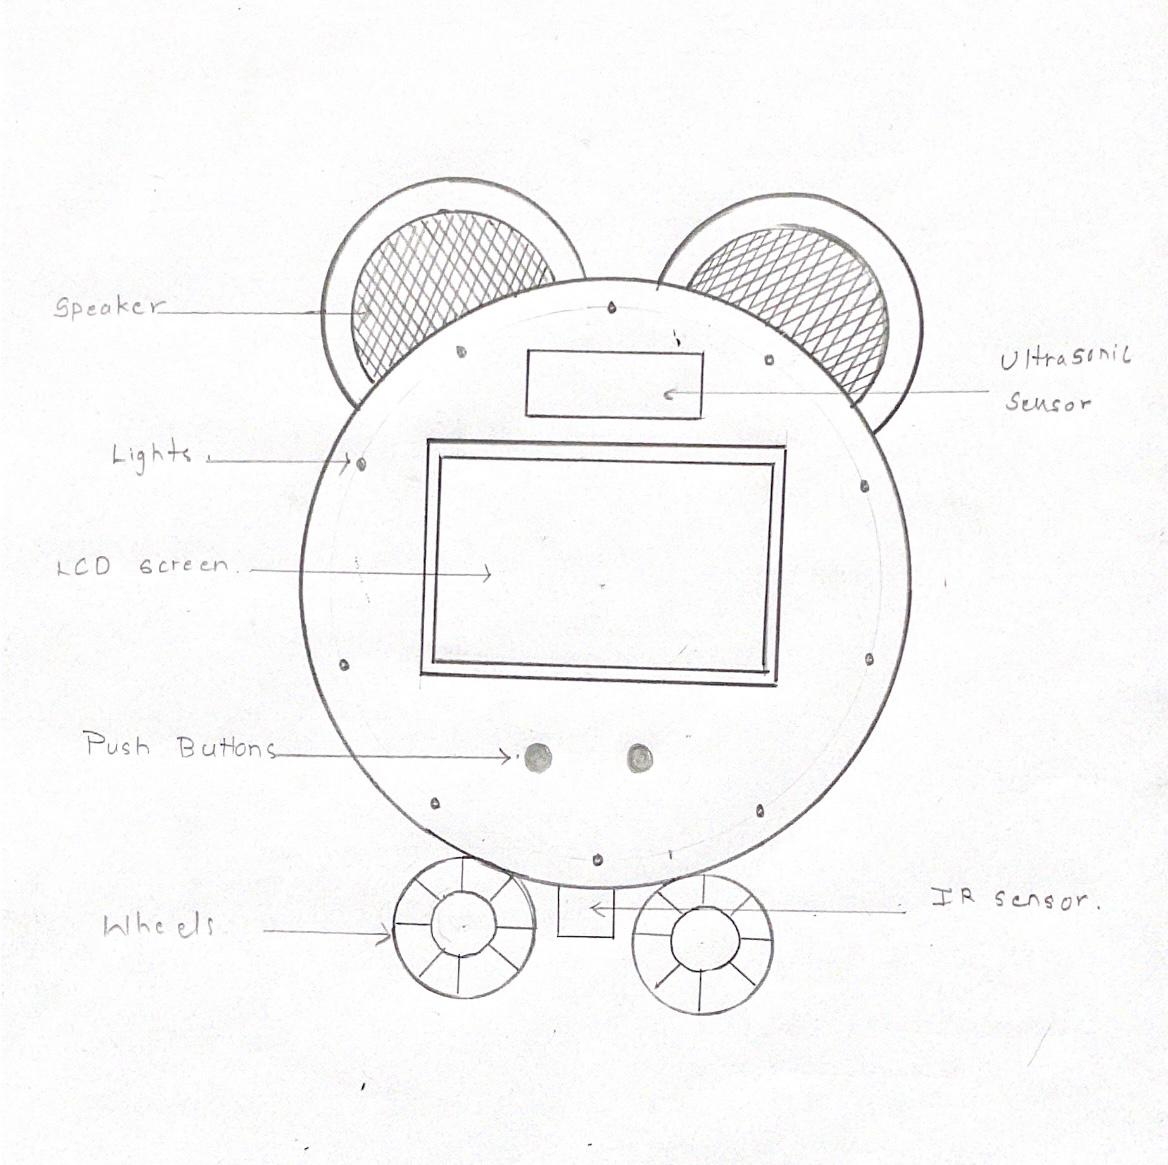 Speaker
Ultrasonic
Sensor
Lights
LCD screen.
Push Buttons
Wheels
IR sensor.